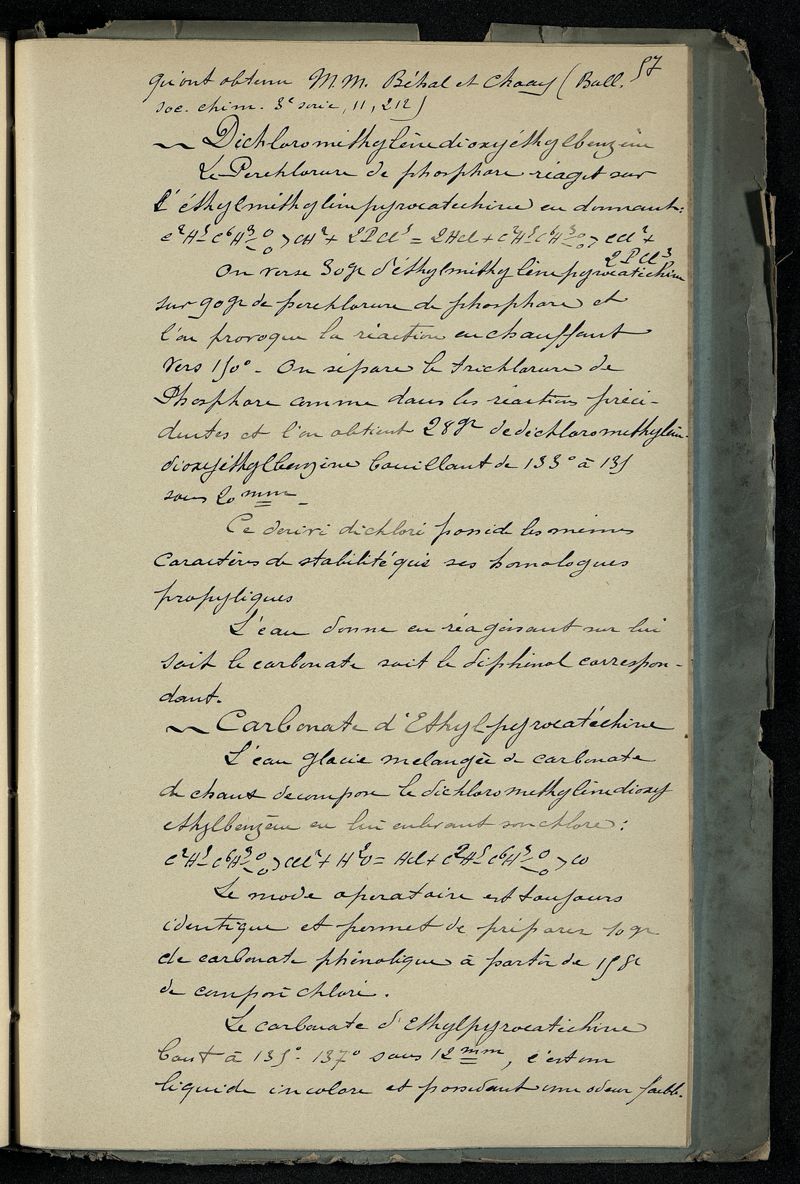 57
qu'ont obtenu M.M. Béhal et Choay (Bull.
soc. chim. 3e serie, 11, 212)
~ Dichloromethylènedioxyéthylbenzène
Le Perchlorure de phosphore réagit sur
l'éthylméthylènepyrocatéchine en donnant:
C²H⁵-C⁶H³-O-O>CH² + 2PCl⁵ = 2HCl + C²H⁵C⁶H³-O-O>CCl² +
2PCl³
On verse 30gr d'éthylméthylènepyrocatéchine
sur 90gr de perchlorure de phosphore et
l'on provoque la réaction en chauffant
vers 150° - On sépare le trichlorure de
Phosphore comme dans les réactions précé-
dentes et l'on obtient 28gr de dichloromethylène
dioxyéthylbenzène bouillant de 133° à 135
sous 20 mm -
Ce dérivé dichloré possède les mêmes
caractères de stabilité que ses homologues
propyliques
L'eau donne en réagissant sur lui
soit le carbonate soit le diphénol correspon-
dant.
~ Carbonate d'Ethyl-pyrocatéchine
L'eau glacée mélangée de carbonate
de chaux décompose le dichloromethylènedioxy
ethylbenzène en lui enlevant son chlore :
C²H⁵-C⁶H³-O-O>CCl² + H²O = HCl + C²H⁵-C⁶H³-O-O>CO
Le mode opératoire est toujours
identique et permet de préparer 10gr
de carbonate phénolique à partir de 15gr
de composé chloré.
Le carbonate d'Ethylpyrocatéchine
bout à 135°-137° sous 12 mm, c'est un
liquide incolore et possédant une odeur faible.